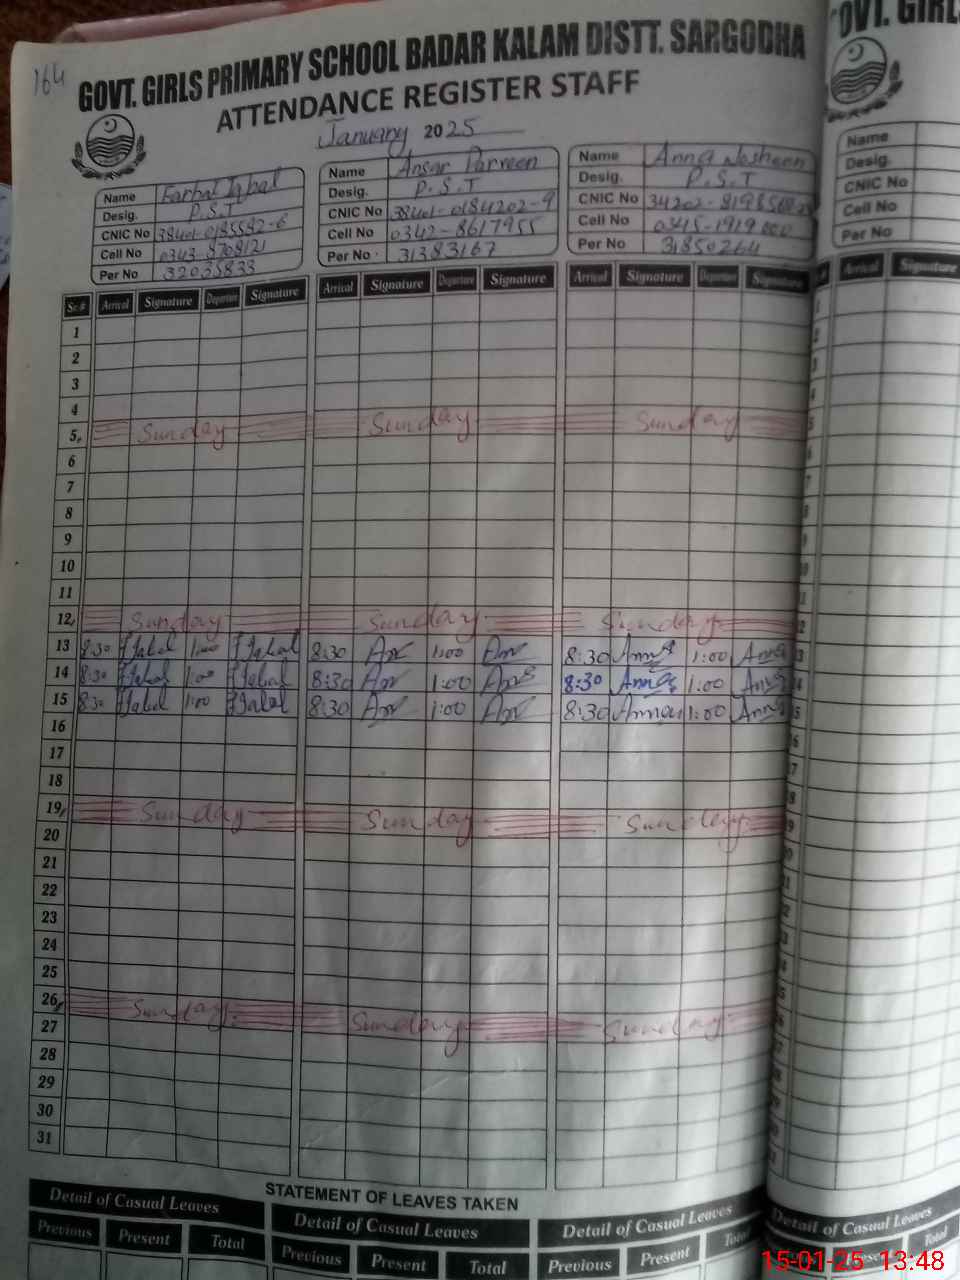 164
GOVT. GIRLS PRIMARY SCHOOL BADAR KALAM DISTT. SARGODHA
ATTENDANCE REGISTER STAFF
January 2025
Name Iqbal
Desig. P.S.T
CNIC No
Cell No 0343-8708121
Per No 32035833
Name Ansar Parveen
Desig. P.S.T
CNIC No 38401-0184202-9
Cell No 0342-8617955
Per No 31383167
Name Anna Nosheen
Desig. P.S.T
CNIC No
Cell No
Per No 31850264
Sr.# Arrival Signature Departure Signature Arrival Signature Departure Signature Arrival Signature Departure Signature
1
2
3
4
5 Sunday Sunday Sunday
6
7
8
9
10
11
12 Sunday Sunday Sunday
13 8:30 1:00 8:30 1:00 8:30 1:00
14 8:30 1:00 8:30 1:00 8:30 1:00
15 8:30 1:00 8:30 1:00 8:30 1:00
16
17
18
19 Sunday Sunday Sunday
20
21
22
23
24
25
26 Sunday Sunday Sunday
27
28
29
30
31
STATEMENT OF LEAVES TAKEN
Detail of Casual Leaves Detail of Casual Leaves Detail of Casual Leaves
Previous Present Total Previous Present Total Previous Present
GOVT. GIRLS
Name
Desig.
CNIC No
Cell No
Per No
Arrival Signature
Detail of Casual Leaves
Present Total
15-01-25 13:48